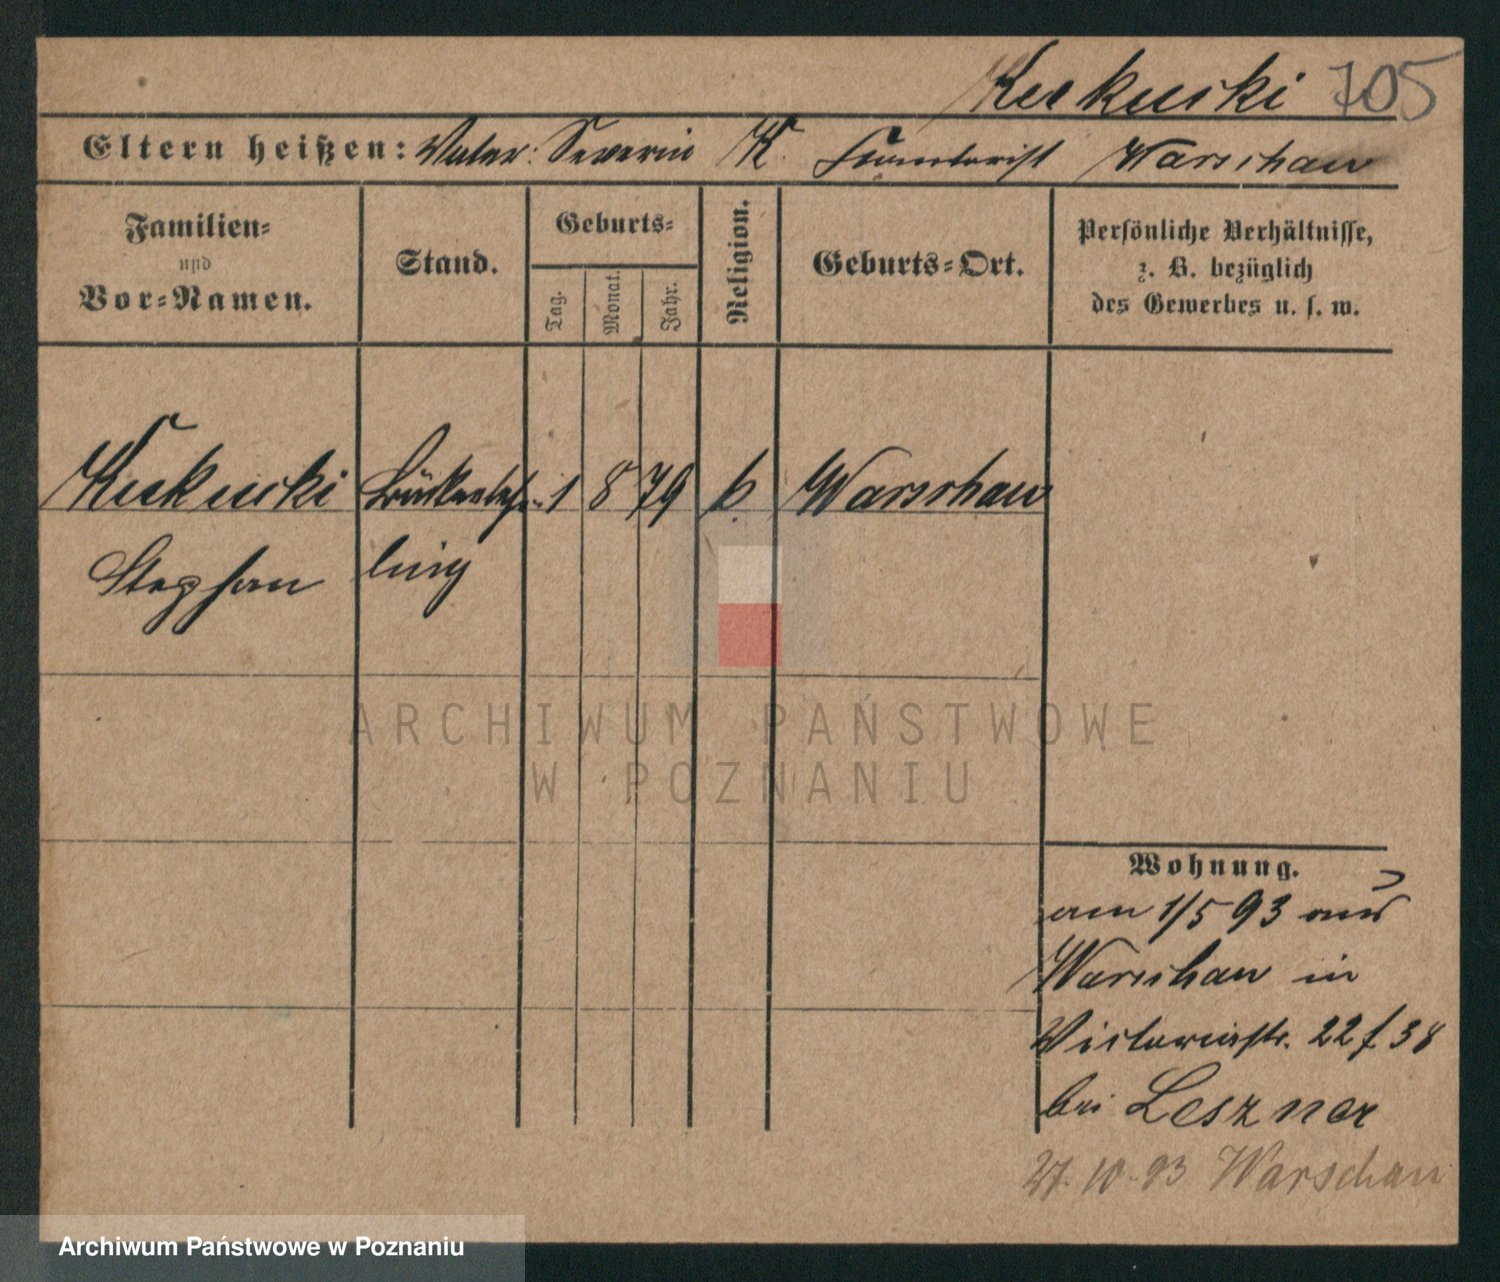 Kukucki 705
Eltern heißen: Vater: Severin K. Warschau
Familien-
und
Vor-Namen.
Stand.
Geburts-
Tag.
Monat.
Jahr.
Religion.
Geburts-Ort.
Persönliche Verhältnisse,
z. B. bezüglich
des Gewerbes u. s. w.
1 8 79 k. Warschau
Stephan ling
ARCHIWUM PAŃSTWOWE
W POZNANIU
Wohnung.
am 1/5 93 aus
Warschau in
Victoriastr. 22 f. 38
bei Leszner
27. 10. 93 Warschau
Archiwum Państwowe w Poznaniu